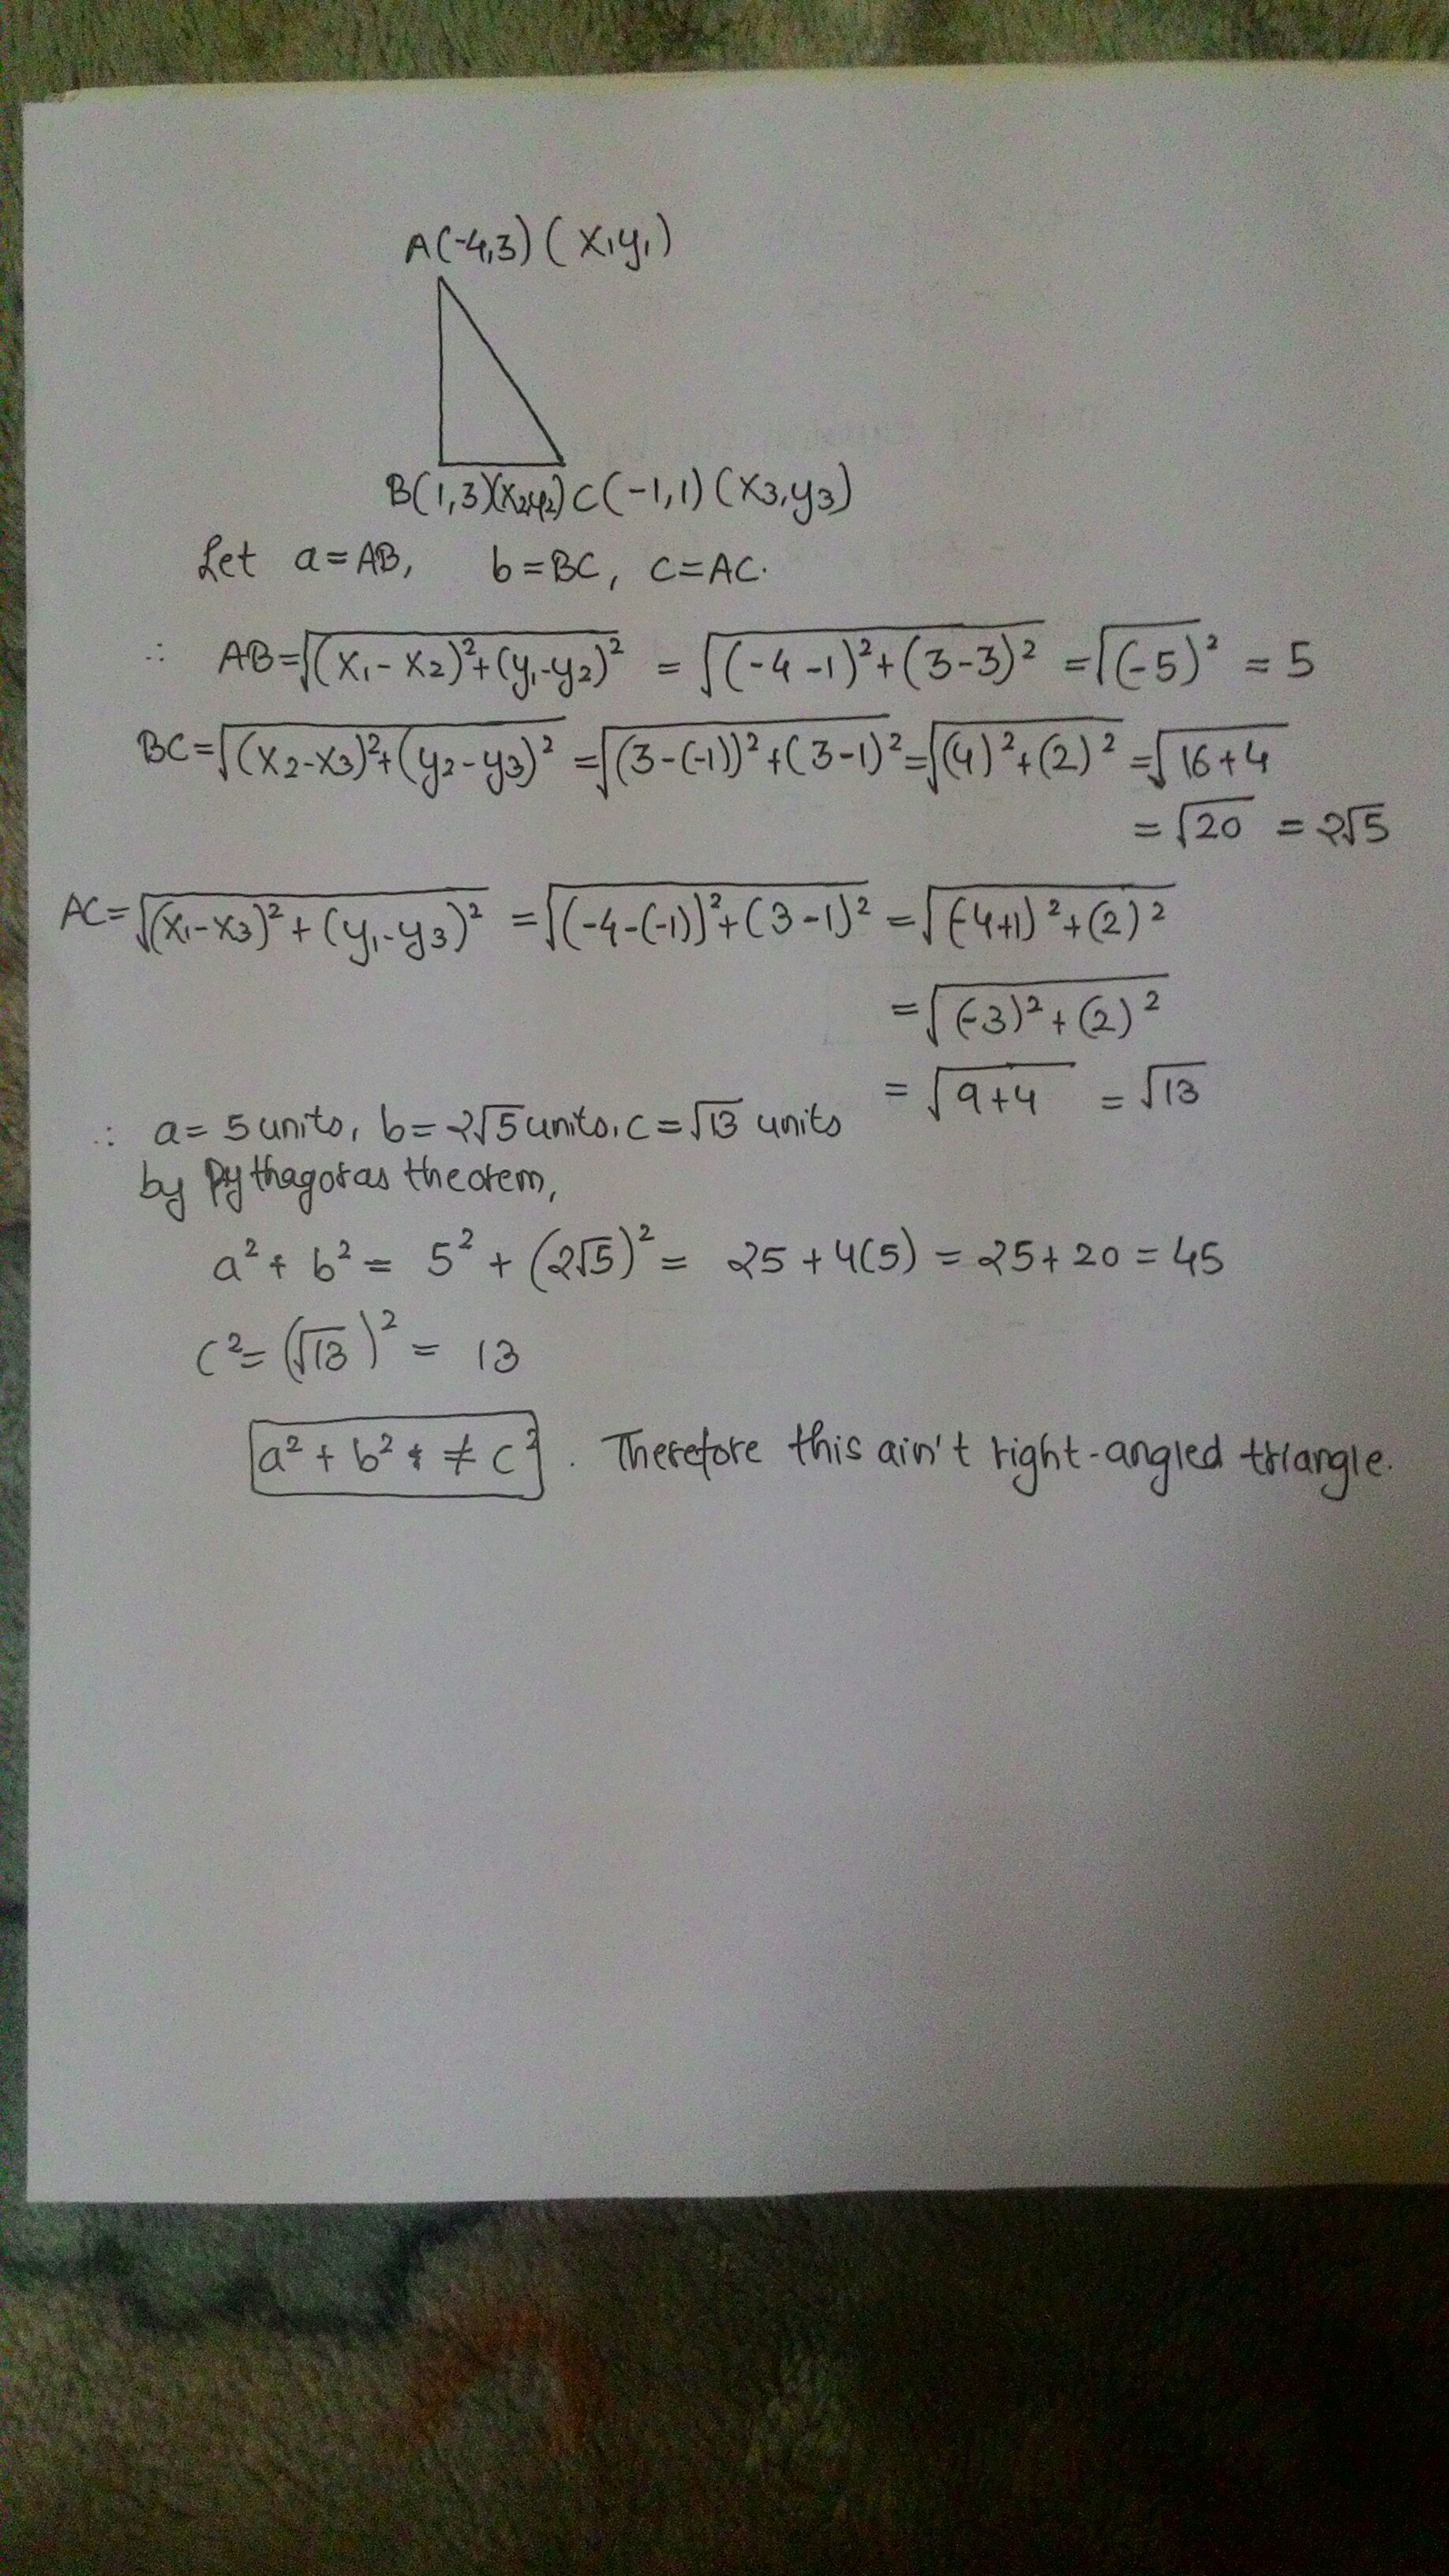 A(-4,3) (x₁y₁)
B(1,3)(x₂y₂) C(-1,1) (x₃,y₃)
Let a=AB, b=BC, c=AC.
∴ AB=√(x₁-x₂)²+(y₁-y₂)² = √(-4-1)²+(3-3)² =√(-5)² = 5
BC=√(x₂-x₃)²+(y₂-y₃)² =√(3-(-1))²+(3-1)²=√(4)²+(2)² =√16+4
=√20 = 2√5
AC=√(x₁-x₃)²+(y₁-y₃)² =√(-4-(-1))²+(3-1)² =√(-4+1)²+(2)²
=√(-3)²+(2)²
= √9+4 = √13
∴ a= 5 units, b=2√5 units, c=√13 units
by Pythagoras theorem,
a²+ b² = 5² + (2√5)² = 25+4(5) = 25+20 = 45
c²= (√13)² = 13
a² + b² ≠ c² . Therefore this ain't right-angled triangle.